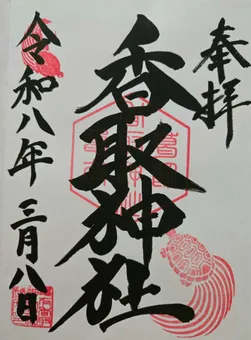 奉拝
香取神社
令和八年三月八日